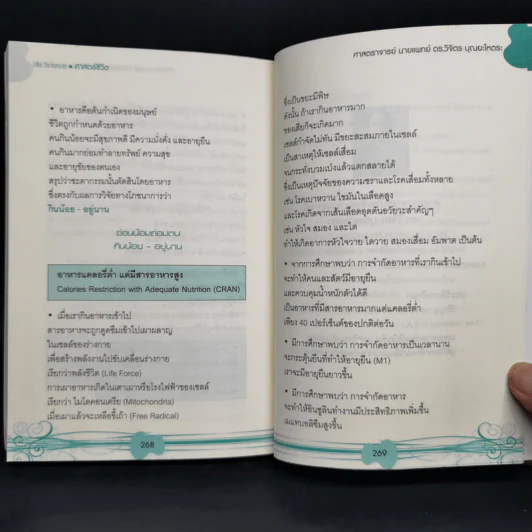 ศาสตร์ชีวิต
• อาหารคือต้นกำเนิดของมนุษย์
ชีวิตถูกกำหนดด้วยอาหาร
คนกินน้อยจะมีสุขภาพดี มีความมั่งคั่ง และอายุยืน
คนกินมากย่อมทำลายทรัพย์ ความสุข
และอายุขัยของตนเอง
สรุปว่าชะตากรรมนั้นตัดสินโดยอาหาร
ซึ่งตรงกับผลการวิจัยทางโภชนาการว่า
กินน้อย - อยู่นาน
อ่อนน้อมถ่อมตน
กินน้อย - อยู่นาน
อาหารแคลอรี่ต่ำ แต่มีสารอาหารสูง
Calories Restriction with Adequate Nutrition (CRAN)
• เมื่อเรากินอาหารเข้าไป
สารอาหารจะถูกดูดซึมเข้าไปเผาผลาญ
ในเซลล์ของร่างกาย
เพื่อสร้างพลังงานไปขับเคลื่อนร่างกาย
เรียกว่าพลังชีวิต (Life Force)
การเผาอาหารเกิดในเตาเผาหรือโรงไฟฟ้าของเซลล์
เรียกว่า ไมโตคอนเดรีย (Mitochondria)
เมื่อเผาแล้วจะเหลือขี้เถ้า (Free Radical)
268
ศาสตราจารย์ นายแพทย์ ดร.วิจิตร บุณยะโหตระ
ซึ่งเป็นขยะมีพิษ
ดังนั้น ถ้าเรากินอาหารมาก
ของเสียก็จะเกิดมาก
เซลล์กำจัดไม่ทัน มีขยะสะสมภายในเซลล์
เป็นสาเหตุให้เซลล์เสื่อม
จนกระทั่งบวมเป่งแล้วแตกสลายได้
จึงเป็นเหตุปัจจัยของความชราและโรคเสื่อมทั้งหลาย
เช่น โรคเบาหวาน ไขมันในเลือดสูง
และโรคเกิดจากเส้นเลือดอุดตันอวัยวะสำคัญๆ
เช่น หัวใจ สมอง และไต
ทำให้เกิดอาการหัวใจวาย ไตวาย สมองเสื่อม อัมพาต เป็นต้น
• จากการศึกษาพบว่า การจำกัดอาหารที่เรากินเข้าไป
จะทำให้คนและสัตว์มีอายุยืน
และควบคุมน้ำหนักตัวได้ดี
เป็นอาหารที่มีสารอาหารมากแต่แคลอรี่ต่ำ
เพียง 40 เปอร์เซ็นต์ของปกติต่อวัน
• มีการศึกษาพบว่า การจำกัดอาหารเป็นเวลานาน
จะกระตุ้นยีนที่ทำให้อายุยืน (M1)
เราจะมีอายุยืนยาวขึ้น
• มีการศึกษาพบว่า การจำกัดอาหาร
จะทำให้อินซูลินทำงานมีประสิทธิภาพเพิ่มขึ้น
เมแทบอลิซึมสูงขึ้น
269